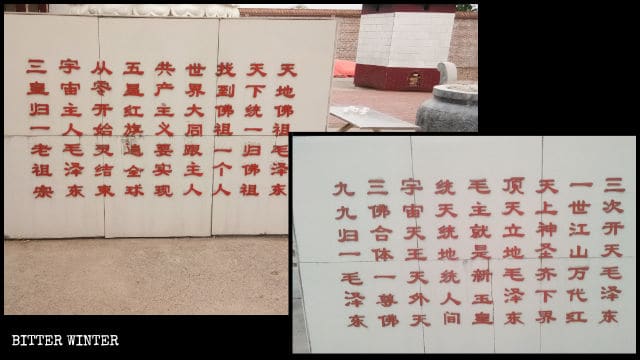 天地佛祖毛泽东
天下统一归佛祖
找到佛祖一个人
世界大同跟主人
共产主义要实现
五星红旗遍全球
从零开始灵结束
宇宙主人毛泽东
三皇归一老祖宗
三次开天毛泽东
一世江山万代红
天上神圣齐下界
顶天立地毛泽东
毛主就是新玉皇
统天统地统人间
宇宙天王天外天
三佛合体一尊佛
九九归一毛泽东
BITTER WINTER